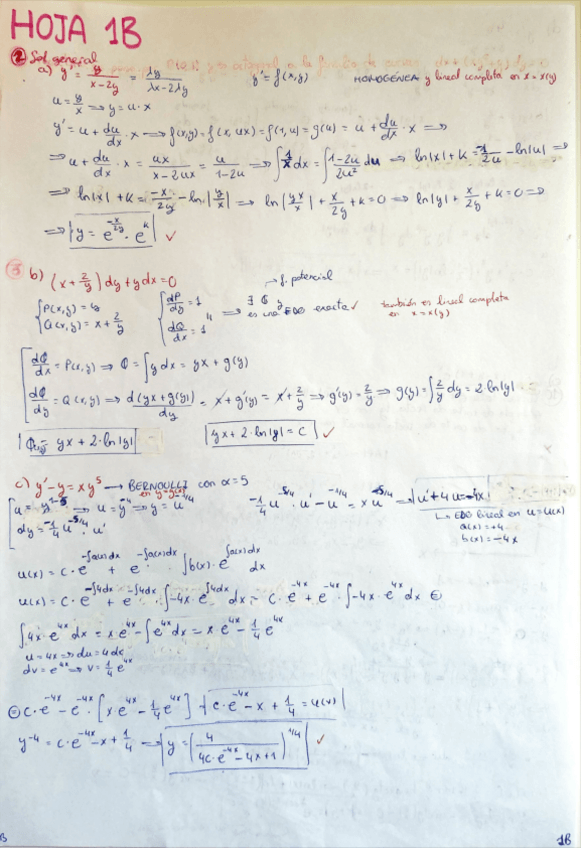 HOJA 1B
② Sol general
a) y' = y/(x-2y) = λy/(λx-2λy)   y' = f(x,y)   HOMOGÉNEA y lineal completa en x = x(y)
u = y/x ⟹ y = u·x
y' = u + du/dx · x ⟶ f(x,y) = f(x, ux) = f(1,u) = g(u) = u + du/dx · x ⟹
⟹ u + du/dx · x = ux/(x-2ux) = u/(1-2u) ⟹ ∫ 1/x dx = ∫ (1-2u)/2u² du ⟹ ln|x| + k = -1/2u - ln|u| ⟹
⟹ ln|x| + k = -x/2y - ln|y/x| ⟹ ln|yx/x| + x/2y + k = 0 ⟹ ln|y| + x/2y + k = 0 ⟹
⟹ y = e^(-x/2y) · e^k ✓
b) (x + 2/y) dy + y dx = 0   → f. potencial
{ P(x,y) = y   { dP/dy = 1   ⟹ ∃ Φ y   también es lineal completa
{ Q(x,y) = x + 2/y   { dQ/dx = 1   es una EDO exacta ✓   en x = x(y)
dΦ/dx = P(x,y) ⟹ Φ = ∫ y dx = yx + g(y)
dΦ/dy = Q(x,y) ⟹ d(yx + g(y))/dy = x + g'(y) = x + 2/y ⟹ g'(y) = 2/y ⟹ g(y) = ∫ 2/y dy = 2·ln|y|
Φ(x,y) = yx + 2·ln|y|   yx + 2·ln|y| = C ✓
c) y' - y = xy⁵ ⟶ BERNOULLI con α = 5
en y = y(x)
u = y^(1-5) ⟹ u = y^-4 ⟹ y = u^(-1/4)   -1/4 u^(-5/4) · u' - u^(-1/4) = x u^(-5/4) ⟹ u' + 4u = -4x
dy = -1/4 u^(-5/4) · u'   ↳ EDO lineal en u = u(x)
a(x) = +4
b(x) = -4x
u(x) = C·e^(-∫a(x)dx) + e^(-∫a(x)dx) · ∫ b(x)·e^(∫a(x)dx) dx
u(x) = C·e^(-∫4dx) + e^(-∫4dx) · ∫ -4x·e^(∫4dx) dx = C·e^(-4x) + e^(-4x) · ∫ -4x·e^(4x) dx ⊜
∫ 4x·e^(4x) dx = x·e^(4x) - ∫ e^(4x) dx = x·e^(4x) - 1/4 e^(4x)
u = 4x ⟹ du = 4dx
dv = e^(4x) ⟹ v = 1/4 e^(4x)
⊜ C·e^(-4x) - e^(-4x) · [x·e^(4x) - 1/4 e^(4x)] = C·e^(-4x) - x + 1/4 = u(x)
y^-4 = C·e^(-4x) - x + 1/4 ⟹ y = (4/(4C·e^(-4x) - 4x + 1))^(1/4) ✓
1B